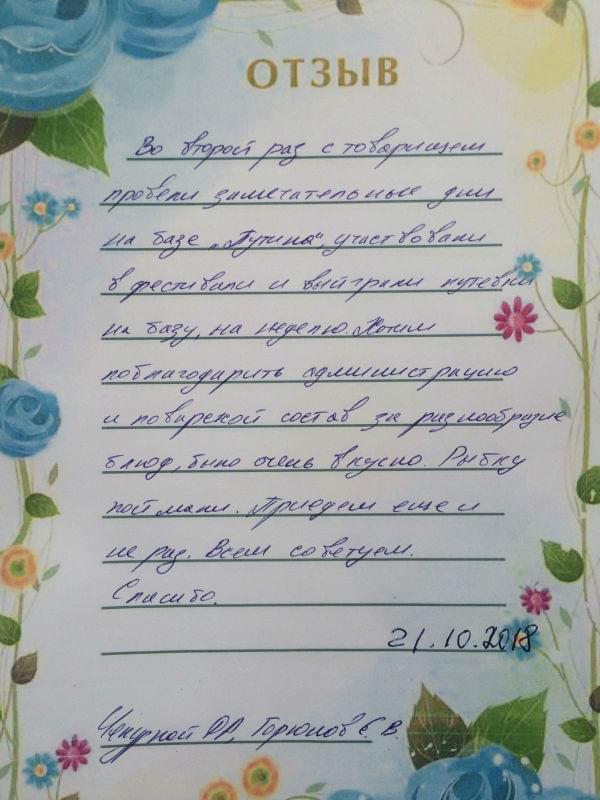 ОТЗЫВ
Во второй раз с товарищем
провели замечательные дни
на базе „Путина“, участвовали
в фестивали и выйграли путевки
на базу, на неделю. Хотим
поблагодарить администрацию
и поварской состав за разнообразие
блюд, было очень вкусно. Рыбку
поймали. Приедем еще и
не раз. Всем советуем.
Спасибо.
21.10.2018
Горюнов Е. В.